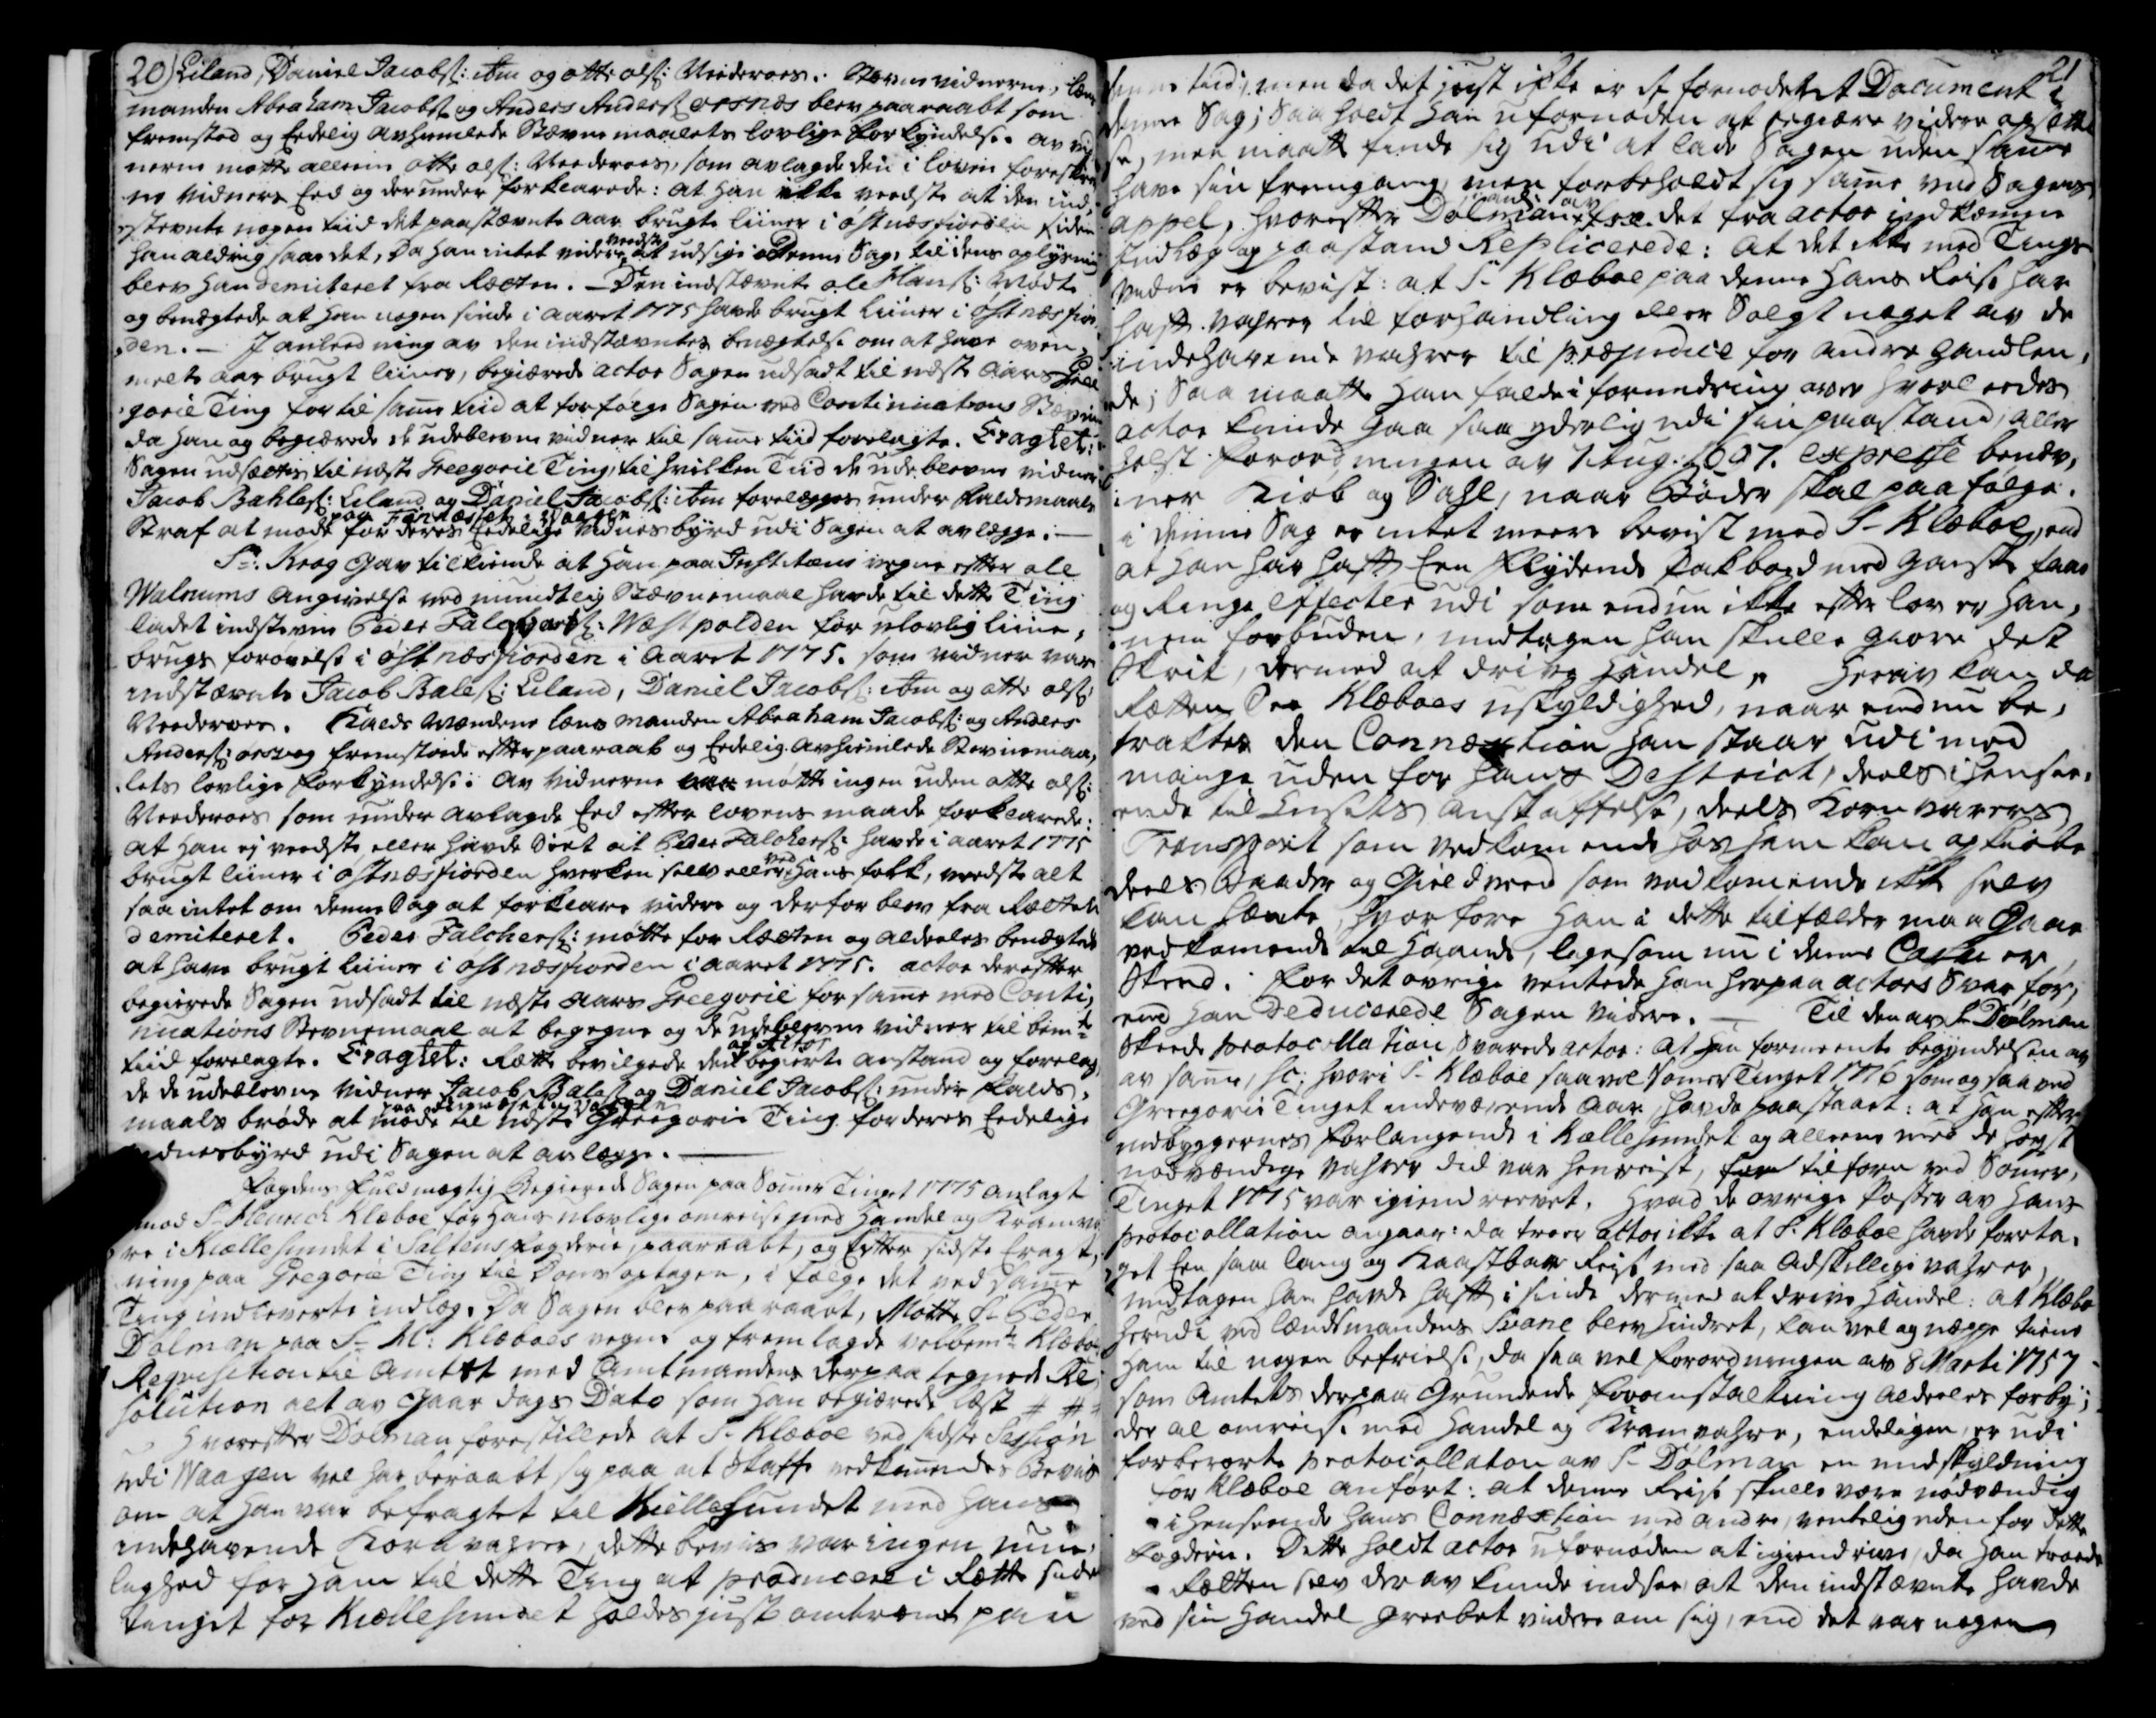 20) Liland, Daniel Jacobs: ibm og otte ols: Urederoer. Stevnevidnerne, læns
manden Abraham Jacobs: og Anders Anders: orsnæs blev paaraabt som
fremstod og Eedelig avhiemlede Stævnemaalets lovlige forkyndelse. av vid
nerne møtte alleene otte ols: Urederoer, som avlagde den i loven foreskrev
ne vidners Eed og derunder forklarede: at han ikke veedste at den ind
stevnte nogen tiid det paastævnte aar brugte liiner i østnæsfiorden siden
han aldrig saae det, Da han intet videre veedste at udsige i denne Sag, til dens oplysning
blev han demiteret fra Rætten. – Den indstævnte ole Hans: mødte
og benægtede at han nogen sinde i aaret 1775 havde brugt liiner i østnæsfior
den. – I anleedning av den indstævntes benægtelse om at have oven
meelte aar brugt liiner, begiærede actor Sagen udsadt til næste aars Gree
gorie Ting for til samme tiid at forfølge Sagen ved Continuations Stævning
da han og begiærede de udeblevne vidner til samme tiid forelagte. Eragtet:
Sagen udsættes til næste Greegorie Ting, til hvilken Tiid de udeblevne vidner
Jacob Bahles: Liland og Daniel Jacobs: ibm forelægges under faldsmaals
Straf at møde for deres Eedelige vidnesbyrd udi Sagen at avlægge. –
Sr: Krog gav tilkiende at han paa Justitiens vegne efter ole
Walnums angivelse ved mundtlig Stævnemaal havde til dette Ting
ladet indstevne Peder Falchers: Westpolden for ulovlig liine,
brugs forøvelse i østnæsfiorden i aaret 1775. som vidner var
indstævnte Jacob Bales: Liland, Daniel Jacobs: ibm og otte ols:
Urederoer. Kalds Mændene lænsmanden Abraham Jacobs: og Anders
Anders: orsvog fremstoede efter paaraab og Eedelig avhiemlede Stevnemaa,
lets lovlige forkyndelse. av vidnerne møtte ingen uden otte ols:
Urederoer som under avlagde Eed efter lovens maade forklarede:
at han ej veedste eller havde Seet at Peder Falchers: havde i aaret 1775
brugt liiner i østnæsfiorden hverken selv eller ved hans folk, veedste alt
saa intet om denne Sag at forklare videre og derfor blev fra Rætten
demiteret. Peder Falchers: møtte for Rætten og aldeeles benægtede
at have brugt liiner i østnæsfiorden i aaret 1775. actor derefter
begierede Sagen udsadt til næste aars Greegorie for samme med Conti,
nuations Stevnemaal at begegne og de udeblevne vidner til bemte
tiid forelagte. Eragtet: Rætten bevilgede den av Actor begierte anstand og forelag
de de udeblevne vidner Jacob Bales: og Daniel Jacobs: under falds,
maals brøde at møde til næste Greegorie Ting for deres Eedelige
vidnesbyrd udi Sagen at avlægge. –
Fogdens fuldmægtig begierede Sagen paa Sommer Tinget 1775 anlagt
mod Sr Henrich Klæboe for hans ulovlige omreise med Handel og Kramva
re i Kiællesundet i Saltens fogderie, paaraabt, og Efter sidste Eragt,
ning paa Gregorie Ting til Doms optagen, i følge det ved samme
Ting indleverte indlæg. Da Sagen blev paaraabt, Møtte Sr Peder
Dolman paa Sr Kl: Klæboes vegne og fremlagde velbemte Klæboes
Reqvisition til Amtet med Amtmandens derpaa tegnede Re
solution alt av Gaar dags Dato som han begiærede læst # #
Hvorefter Dolman forestillede at Sr Klæboe ved sidste Session
udi Waagen vel har beraabt sig paa at skaffe vedkommendes Beviis
om at han var befragtet til Kiellesundet med hans
indehavende Kornvahrer, dette beviis var ingen mue,
lighed for ham til dette Ting at producere i Rætte siden
tinget for Kiællesundet holdes just ombrent paa
21
denne tiid, men da det just ikke er et fornødent Document i
denne Sag; Saa holdt han ufornøden at begiære videre opsættel
se, men maatte finde sig udi at lade Sagen uden samme
have sin fremgang, men forbeholdt sig samme ved Sagens
appel, hvorefter Dolman det fra actor indkomne
Indlæg og paastand Replicerede: at det ikke med Tings
vidne er bevist: at Sr Klæboe paa denne Hans Reise har
haft vahrer til forhandling eller Solgt noget av de
indehavende vahrer til præjudice for andre handlen,
de; Saa maatte han falde i forundring over hvorleedes
actor kunde gaa saa yderlig udi sin paastand, aller
helst forordningen av 1 Aug: 1697. expresse benev,
ner Kiøb og Sahl, naar Bøder skal paafølge.
i denne Sag er intet meere bevist mod Sr Klæboe, end
at han har haft Een flydende Pakboed med ganske faae
og Ringe Effecter udi som endnu ikke efter lov er han,
nem forbuden, undtagen han skulle giøre det
Skrit, dermed at drive Handel. Herav kan da
Rætten See Klæboes uskyldighed, naar endnu be,
traktes den Connæxtion han staar udi med
mange uden for hans Destrict, deels i henseen,
ende til anskaffelse, deels Kornvarers
Transport som vedkommende hos ham kan opkiøbe
deels Baader og Gield veed som vedkommende ikke selv
kan hænte, hvorfore han i dette tilfælde maa gaae
vedkommende til haande, ligesom nu i denne Casu er
Skeed. for det øvrige ventede han herpaa actors Svar for,
end han Deducerede Sagen videre. – Til den av Sr Dolman
Skeede protocollation, Svarede actor: at han formeente begyndelsen av
av samme, sc: hvori Sr Klæboe saavel Sommer Tinget 1776 som og saa ved
Greegorii Tinget indeværende aar havde paastaaet: at han efter
indbyggernes forlangende i Kællesundet og alleene med de høyst
nødvændige vahrer did var henreist, tilforn ved Sommer,
Tinget 1775 var igiendrevet. Hvad de øvrige Poster av Hans
protocollation angaar: da troer actor ikke at Sr Klæboe havde foreta,
get Een saa lang og Kaastbar Reise med saa adskillige vahrer
undtagen han havde haft i sinde dermed at drive Handel: at Klæboe
herudi ved lændsmandens Svane blev hindret, kan vel og neppe tiene
ham til nogen befrielse, da saavel forordningen av 8 Marti 1757
som Amtets derpaa Grundede foranstaltning aldeeles forby,
der al omreise med Handel og Kramvahre, endeligen, er udi
forberørte protocollation av Sr Dolman en undskyldning
for Klæboe anført: at denne Reise skulle være nødvændig
i henseende hans Connæxtion med andre, ventelig uden for dette
fogderie. Dette holdt actor ufornøden at igiendrive, da han troede
Rætten selv derav kunde indsee at den indstævnte havde
ved sin Handel greebet videre om sig, end det var nogen